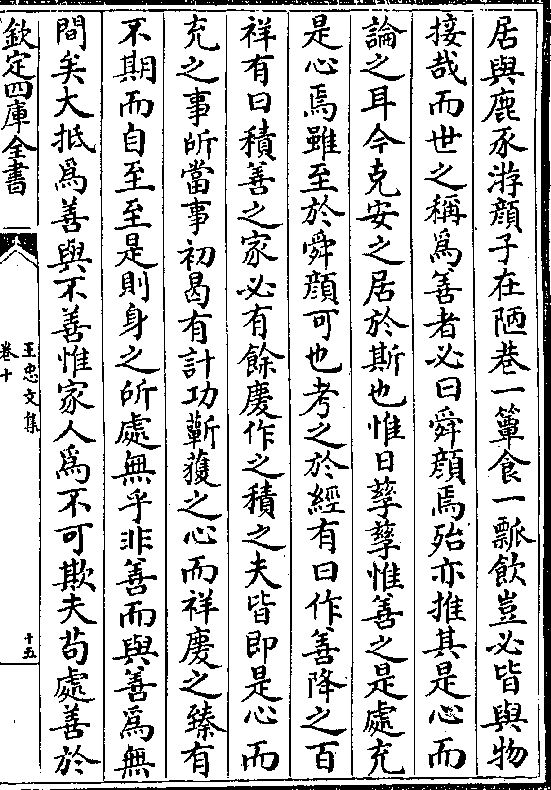 居與鹿豕游顔子在陋巷一簞食一瓢飲豈必皆與物
接哉而世之稱爲善者必曰舜顔焉殆亦推其是心而
論之耳今克安之居於斯也惟日孳孳惟善之是處充
是心焉雖至於舜顔可也考之於經有曰作善降之百
祥有曰積善之家必有餘慶作之積之夫皆即是心而
充之事所當事初曷有計功蘄獲之心而祥慶之臻有
不期而自至至是則身之所處無乎非善而與善爲無
間矣大抵爲善與不善惟家人爲不可欺夫苟處善於
欽定四庫全書
王忠文集
卷十
十五